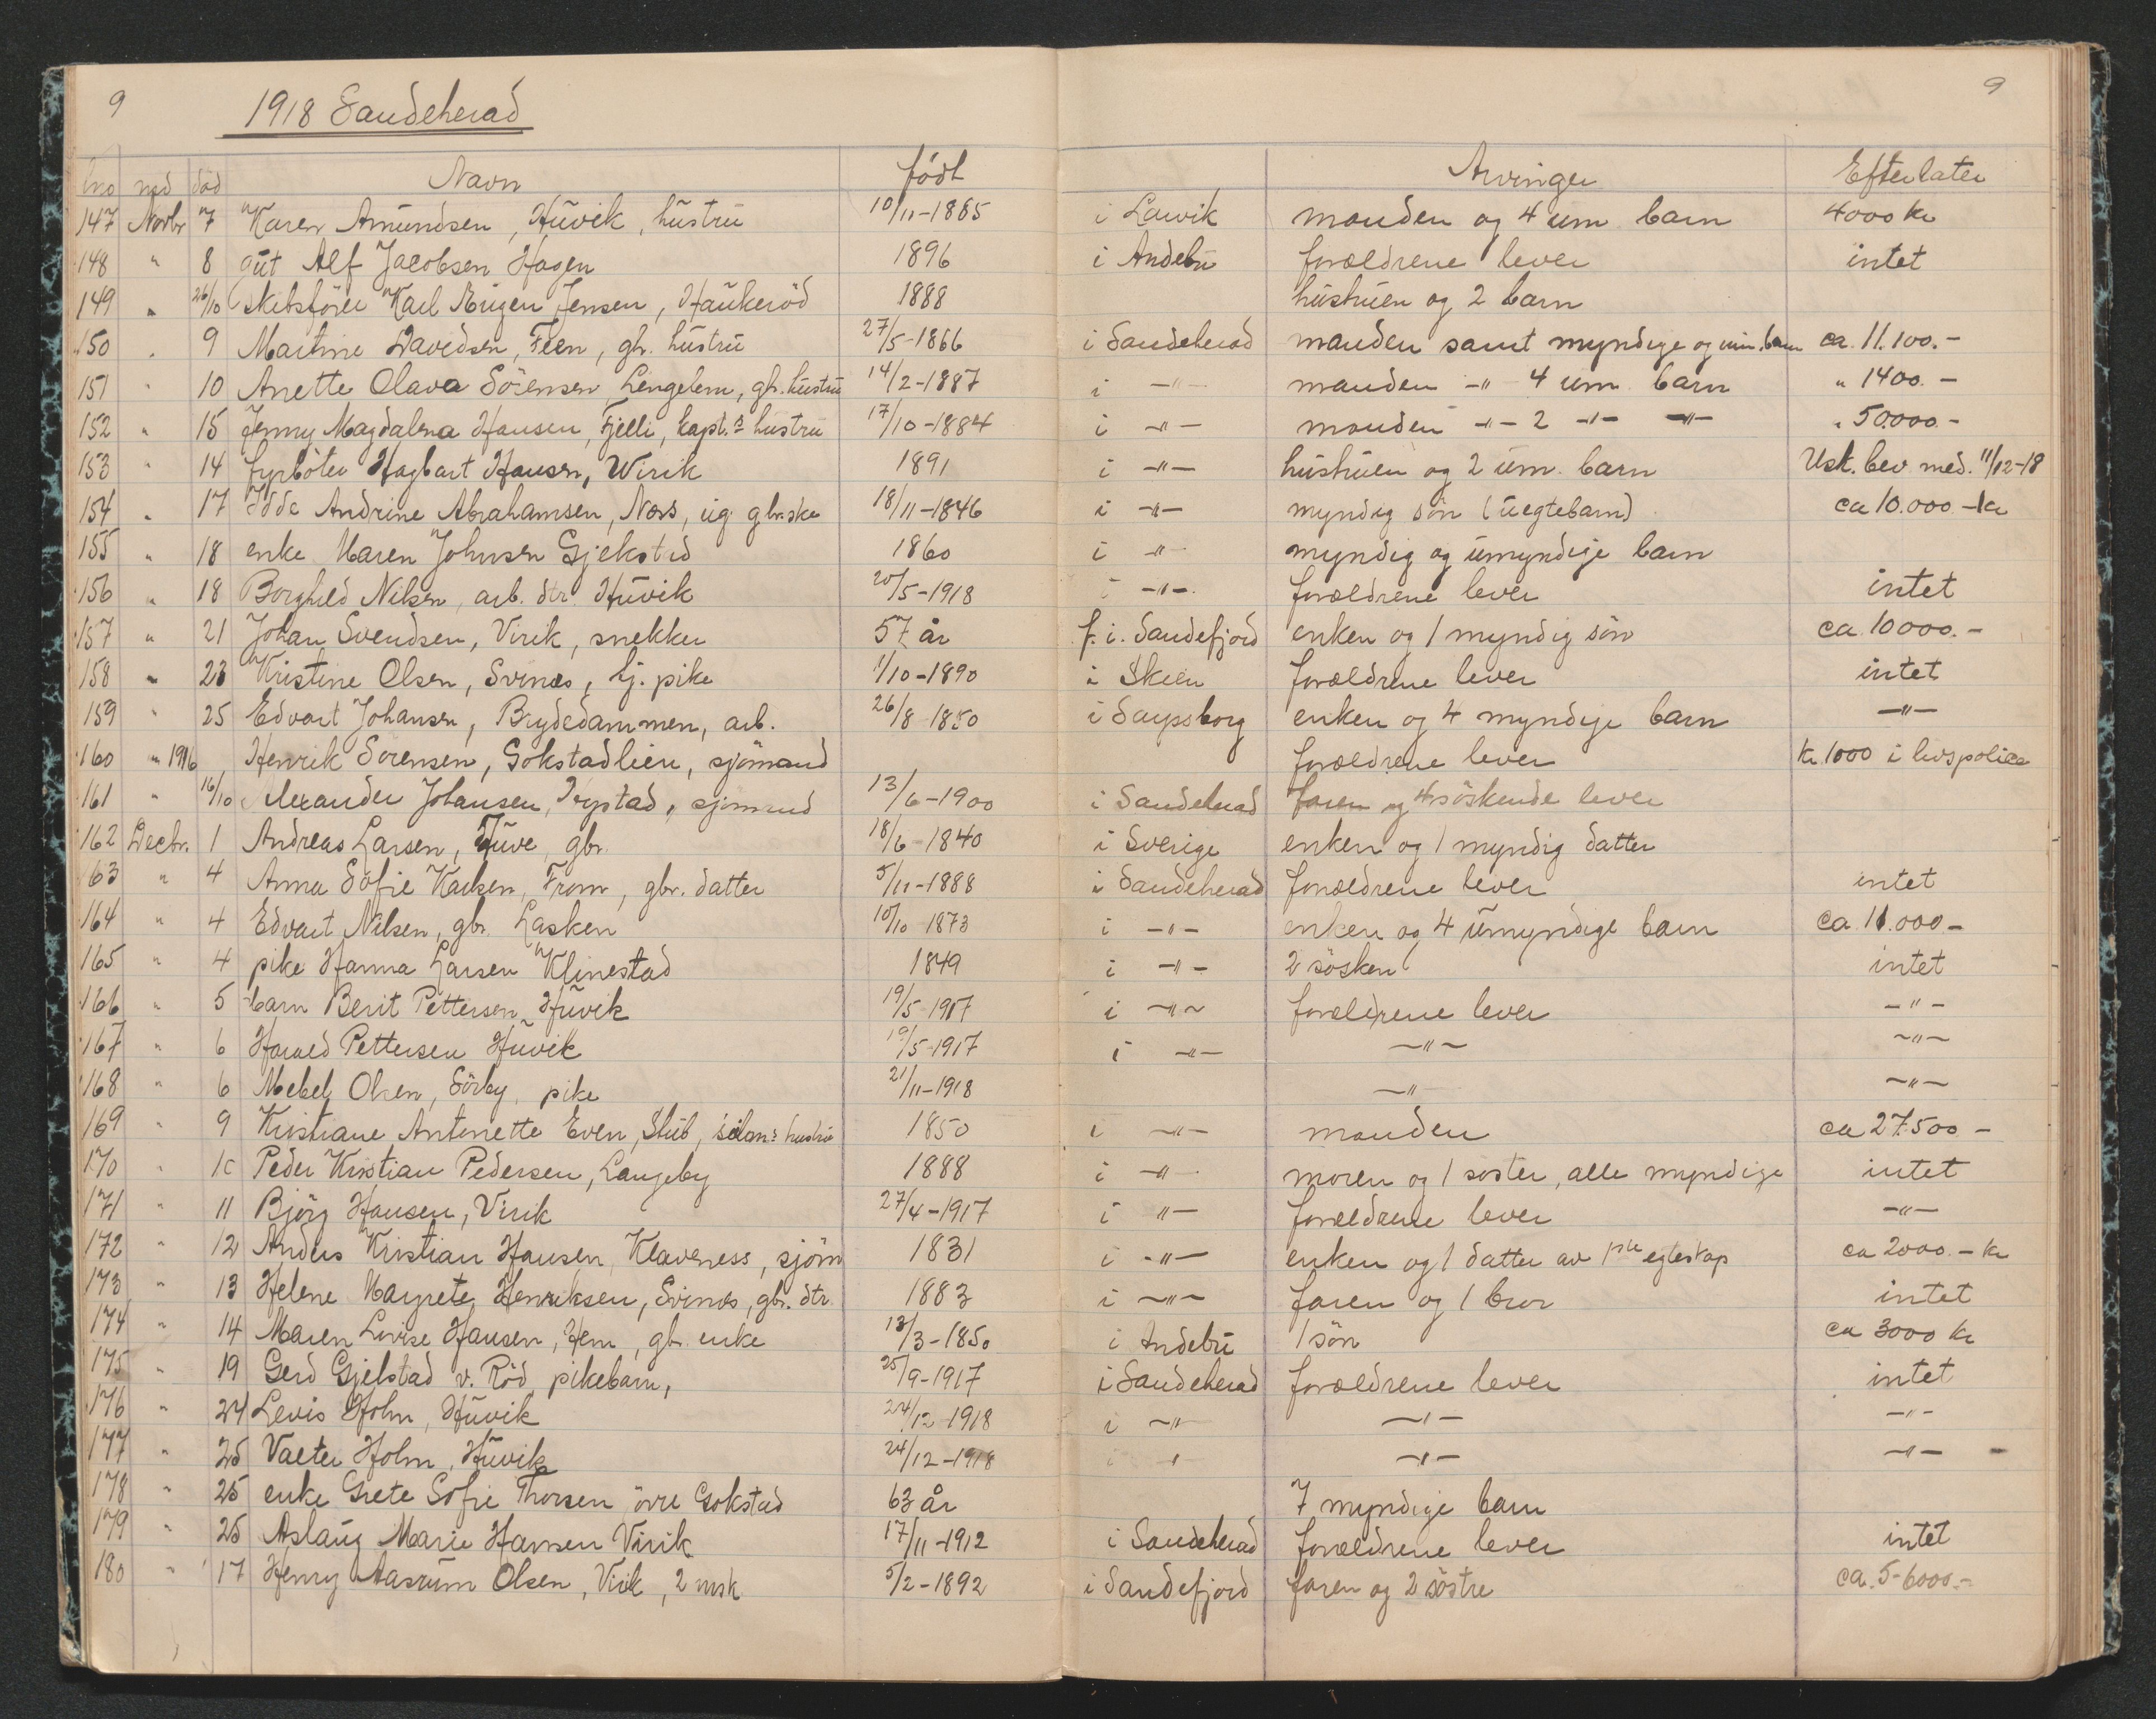 9 1918 Sandeherad 9
lno md död Navn født Arvinger Efterlater
147 Novbr 7 Karen Amundsen, Huvik, hustru 10/11-1865 i Larvik manden og 4 um. barn 4000 kr
148 " 8 gut Alf Jacobsen Hagen 1896 i Andebu forældrene lever intet
149 " 26/10 skibsfører Karl Birger Jensen, Haukeröd 1888 hustruen og 2 barn
150 " 9 Martine Davidsen, Feen, gb. hustru 27/5-1866 i Sandeherad manden samt myndige og um. barn ca. 11.100.-
151 " 10 Anette Olava Sörensen, Lingelem, gb. hustru 14/2-1887 i -"- manden -"- 4 um. barn " 1400.-
152 " 15 Jenny Magdalena Hansen, Fjelli, kapt.s hustru 17/10-1884 i -"- manden -"- 2 -"- -"- " 50.000.-
153 " 14 fyrböter Hagbart Hansen, Wirik 1891 i -"- hustruen og 2 um. barn Usk. bev. med. 11/12-18
154 " 17 Andrine Abrahamsen, Næs, ug. gbr.ske 18/11-1846 i -"- myndig sön (uegtebarn) ca 10.000.-kr
155 " 18 enke Maren Johnsen Gjekstad 1860 i -"- myndig og umyndige barn
156 " 18 Borghild Nilsen, arb. dtr. Huvik 20/5-1918 i -"- forældrene lever intet
157 " 21 Johan Svendsen, Virik, snekker 57 år f. i. Sandefjord enken og 1 myndig sön ca. 10000.-
158 " 23 Kristine Olsen, Svines, tj. pike 1/10-1890 i Skien forældrene lever intet
159 " 25 Edvart Johansen, Brydedammen, arb. 26/8-1850 i Sarpsborg enken og 4 myndige barn -"-
160 " 1916 Henrik Sörensen, Gokstadlien, sjömand forældrene lever kr. 1000 i livspolice
161 " 16/10 Alexander Johansen, sjömand 13/6-1900 i Sandeherad faren og 4 söskende lever
162 Decbr. 1 Andreas Larsen, Tuve, gbr. 18/6-1840 i Sverige enken og 1 myndig datter
163 " 4 Anna Sofie Karlsen, From, gbr. datter 5/11-1888 i Sandeherad forældrene lever intet
164 " 4 Edvart Nilsen, gbr. Lasken 10/10-1873 i -"- enken og 4 umyndige barn ca. 11.000-
165 " 4 pike Hanna Larsen Klinestad 1849 i -"- 2 sösken intet
166 " 5 barn Berit Pettersen Huvik 19/5-1917 i -"- forældrene lever -"-
167 " 6 Harald Pettersen Huvik 19/5-1917 i -"- -"- -"-
168 " 6 Mebel Olsen, Sörby, pike 21/11-1918 -"- -"-
169 " 9 Kristiane Antonette Even, Stub, hustru 1850 i -"- manden ca 27500-
170 " 10 Peder Kristian Pedersen, Langeby 1888 i -"- moren og 1 söster, alle myndige intet
171 " 11 Bjørg Hansen, Virik 27/4-1917 i "- forældrene lever -"-
172 " 12 Anders Kristian Hansen, Klaveness, sjöm 1831 i -"- enken og 1 datter av 1ste egteskap ca 2000.- kr
173 " 13 Helene Margrete Henriksen, Svines, gbr. dtr. 1883 i -"- faren og 1 bror intet
174 " 14 Maren Lovise Hansen, Hem, gbr. enke 13/3-1850 i Andebu 1 sön ca 3000 kr
175 " 19 Gerd Gjelstad v. Röd, pikebarn, 25/9-1917 i Sandeherad forældrene lever intet
176 " 24 Levis Holm, Huvik 24/12-1918 i -"- -"- -"-
177 " 25 Valter Holm, Huvik 24/12-1918 i " -"- -"-
178 " 25 enke Grete Sofie Thorsen övre Gokstad 63 år 7 myndige barn
179 " 25 Aslaug Marie Hansen Virik 17/11-1912 i Sandeherad forældrene lever intet
180 " 17 Henry Aasrum Olsen, Virik, 2 msk 5/2-1892 i Sandefjord faren og 2 söstre ca. 5-6000.-